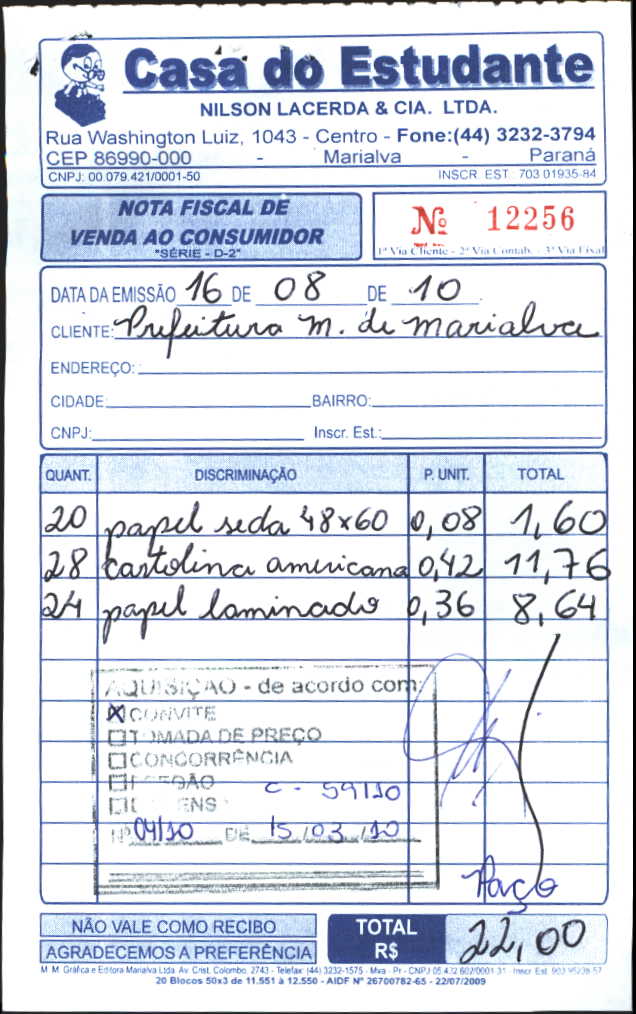 Casa do Estudante
NILSON LACERDA & CIA. LTDA.
Rua Washington Luiz, 1043 - Centro - Fone:(44) 3232-3794
CEP 86990-000 - Marialva - Paraná
CNPJ: 00.079.421/0001-50 INSCR. EST. 703.01935-84
NOTA FISCAL DE
VENDA AO CONSUMIDOR
"SÉRIE - D-2"
Nº 12256
1ª Via Cliente - 2ª Via Contab. - 3ª Via Fixa
DATA DA EMISSÃO 16 DE 08 DE 10
CLIENTE: Prefeitura M. de Marialva
ENDEREÇO:
CIDADE: BAIRRO:
CNPJ: Inscr. Est.:
QUANT. DISCRIMINAÇÃO P. UNIT. TOTAL
20 papel seda 48x60 0,08 1,60
28 cartolina americana 0,42 11,76
24 papel laminado 0,36 8,64
AQUISIÇÃO - de acordo com:
X CONVITE
TOMADA DE PREÇO
CONCORRÊNCIA
C - 59/10
Nº 04/10 DE 15/03/10
Paço
NÃO VALE COMO RECIBO
AGRADECEMOS A PREFERÊNCIA
TOTAL R$ 22,00
M. M. Gráfica e Editora Marialva Ltda. Av. Crist. Colombo, 2743 - Telefax: (44) 3232-1575 - Mva - Pr - CNPJ 05.432.602/0001-31 - Inscr. Est. 903.95238-57
20 Blocos 50x3 de 11.551 à 12.550 - AIDF Nº 26700782-65 - 22/07/2009